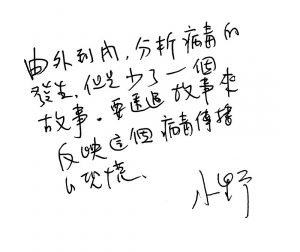 由外到內,分析病毒的
發生,但是少了一個
故事。要透過故事來
反映這個病毒傳播
的現境、
小野